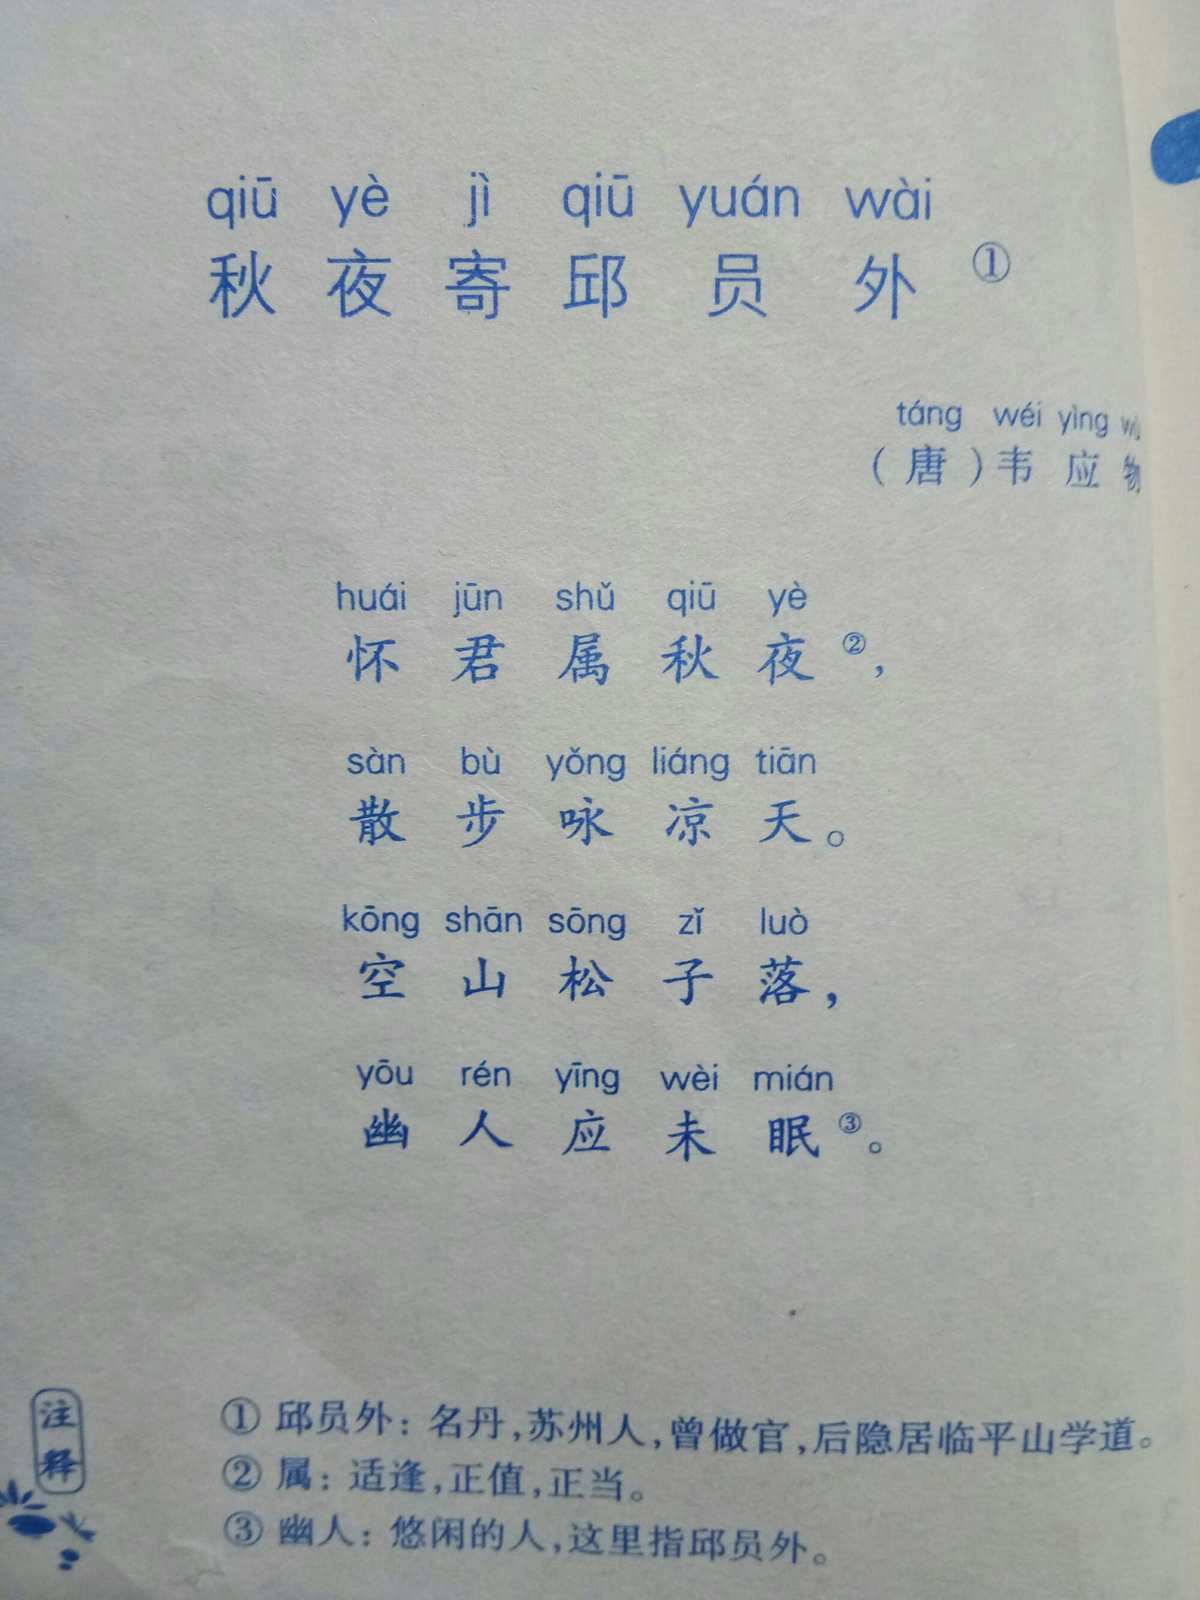 qiū yè jì qiū yuán wài
秋夜寄邱员外①
táng wéi yìng
（唐）韦应物
huái jūn shǔ qiū yè
怀君属秋夜②，
sàn bù yǒng liáng tiān
散步咏凉天。
kōng shān sōng zǐ luò
空山松子落，
yōu rén yīng wèi mián
幽人应未眠③。
注释
①邱员外：名丹，苏州人，曾做官，后隐居临平山学道。
②属：适逢，正值，正当。
③幽人：悠闲的人，这里指邱员外。